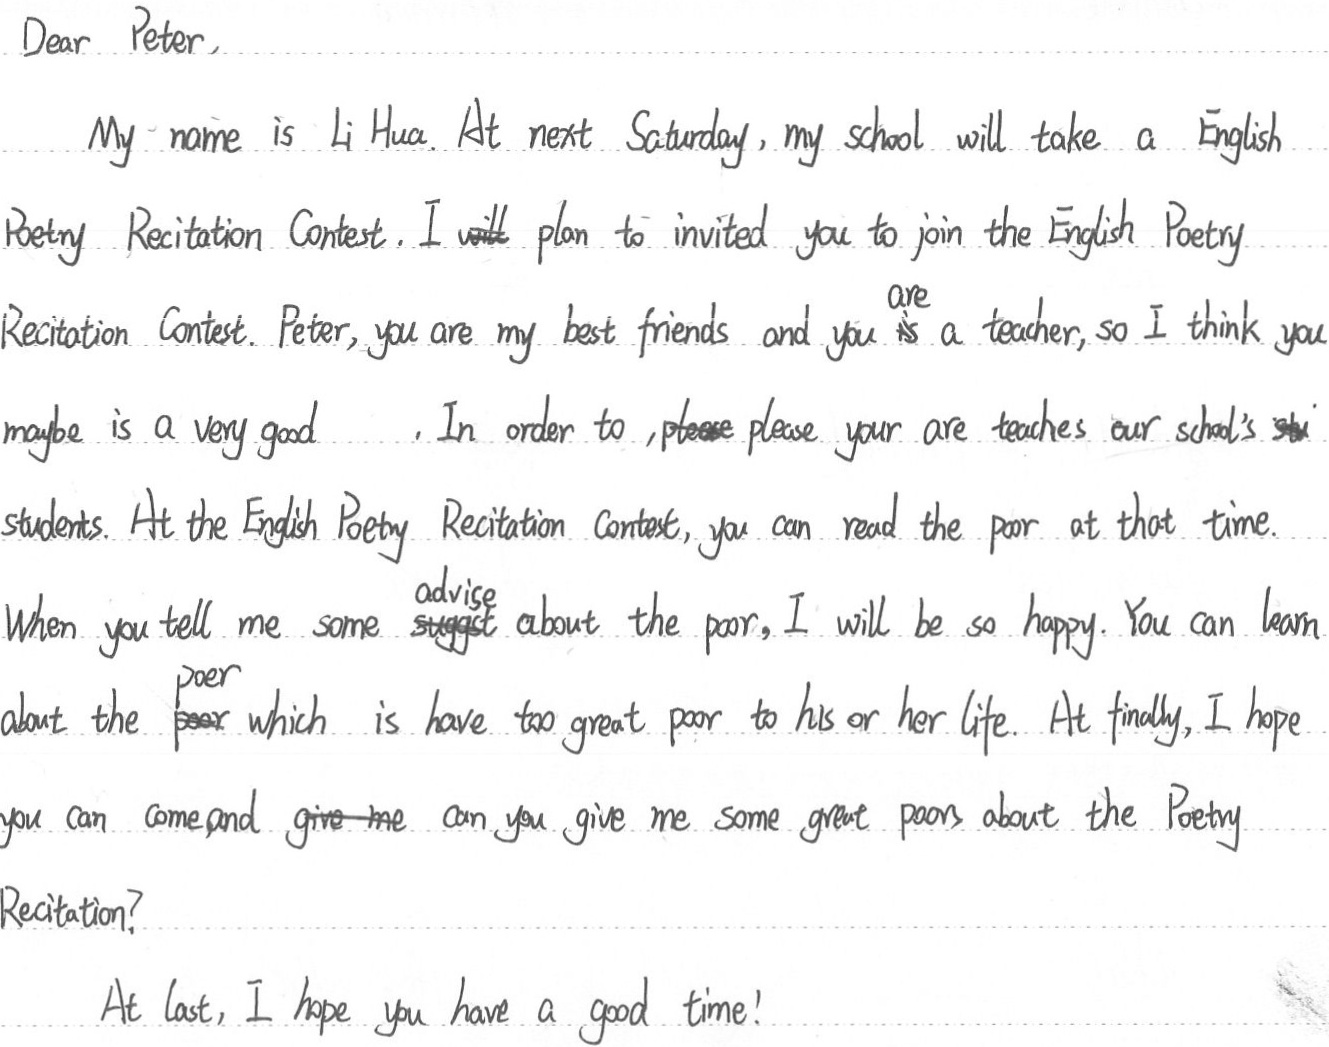 Dear Peter,
My name is Li Hua. At next Saturday, my school will take a English
Poetry Recitation Contest. I will plan to invited you to join the English Poetry
Recitation Contest. Peter, you are my best friends and you is are a teacher, so I think you
maybe is a very good . In order to , please please your are teaches our school's stu
students. At the English Poetry Recitation Contest, you can read the poor at that time.
When you tell me some suggst advise about the poor, I will be so happy. You can learn
about the peer poer which is have too great poor to his or her life. At finally, I hope
you can come, and give me can you give me some great poors about the Poetry
Recitation?
At last, I hope you have a good time!